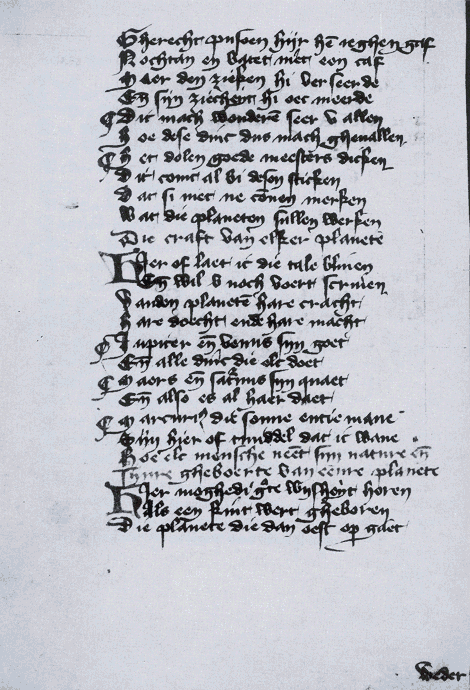 Gherecht pusoen hijr hē ieghen gaf
Nochtan en batet niet een caf
Maer den zieken hi verseerde
Eñ sijn ziecheit hi oec meerde
Dit mach wonderē seer v allen
Hoe dese dinc dus mach ghevallen
Het dolen goede meesters dicken
Dit comt al bi desen sticken
Dat si niet ne connen merken
Wat die planeten sullen werken
Die craft van elker planete
Hier of laet ic die tale bliuen
Eñ wil v noch voert scriuen
Vanden planetē hare cracht
Hare doecht ende hare macht
Jupiter eñ venus sijn goet
Eñ alle dinc die elc doet
Maers eñ satnus sijn quaet
Eñ also es al haer daet
Marcuri die sonne entie mane
Sijn hier of tmiddel dat ic wane
Hoe elc mensche neēt sijn nature eñ
sijnre gheboerte van eenre planete
Hier moghedi gte wijsheyt horen
Als een kint wert gheboren
Die planete die dan oest op gaet
weder